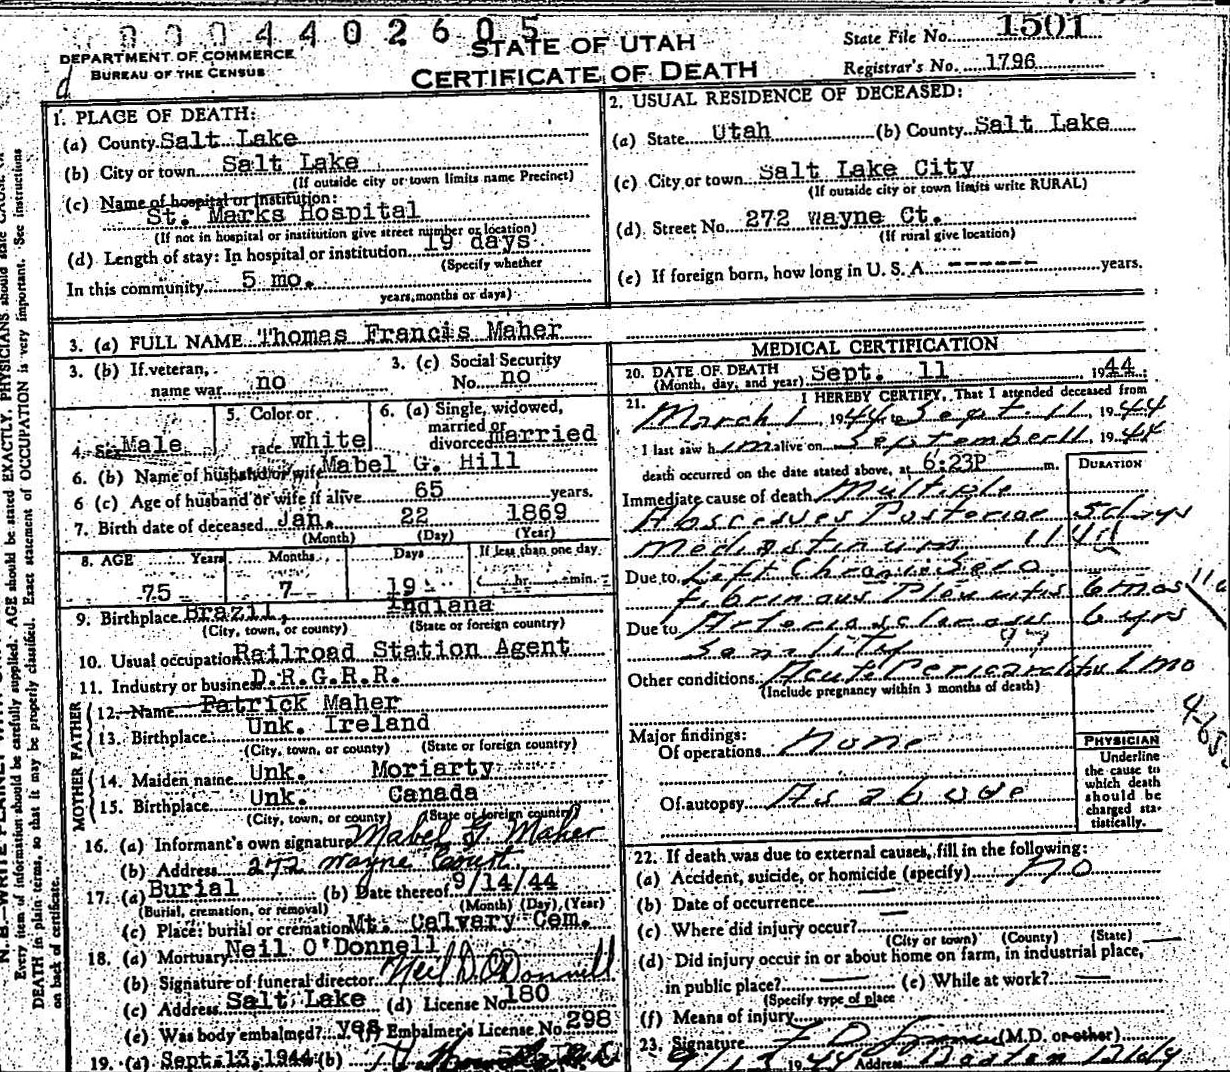 0004402605
DEPARTMENT OF COMMERCE
BUREAU OF THE CENSUS
d
STATE OF UTAH
CERTIFICATE OF DEATH
State File No. 1501
Registrar's No. 1796
1. PLACE OF DEATH:
(a) County Salt Lake
(b) City or town Salt Lake
(If outside city or town limits name Precinct)
(c) Name of hospital or institution:
St. Marks Hospital
(If not in hospital or institution give street number or location)
(d) Length of stay: In hospital or institution 19 days
(Specify whether
In this community 5 mo.
years, months or days)
2. USUAL RESIDENCE OF DECEASED:
(a) State Utah (b) County Salt Lake
(c) City or town Salt Lake City
(If outside city or town limits write RURAL)
(d) Street No. 272 Wayne Ct.
(If rural give location)
(e) If foreign born, how long in U. S. A. ------- years.
3. (a) FULL NAME Thomas Francis Maher
3. (b) If veteran, name war no
3. (c) Social Security No. no
4. Sex Male
5. Color or race white
6. (a) Single, widowed, married or divorced married
6. (b) Name of husband or wife Mabel G. Hill
6 (c) Age of husband or wife if alive 65 years.
7. Birth date of deceased Jan. 22 1869
(Month) (Day) (Year)
8. AGE Years Months Days If less than one day
75 7 19 hr. min.
9. Birthplace Brazil, Indiana
(City, town, or county) (State or foreign country)
10. Usual occupation Railroad Station Agent
11. Industry or business D.R.G.R.R.
FATHER
12. Name Patrick Maher
13. Birthplace Unk. Ireland
(City, town, or county) (State or foreign country)
MOTHER
14. Maiden name Unk. Moriarty
15. Birthplace Unk. Canada
(City, town, or county) (State or foreign country)
16. (a) Informant's own signature Mabel G Maher
(b) Address 272 Wayne Court
17. (a) Burial (b) Date thereof 9/14/44
(Burial, cremation, or removal) (Month) (Day) (Year)
(c) Place: burial or cremation Mt. Calvary Cem.
18. (a) Mortuary Neil O'Donnell
(b) Signature of funeral director Neil D. O'Donnell
(c) Address Salt Lake (d) License No 180
(e) Was body embalmed? yes Embalmer's License No. 298
19. (a) Sept. 13, 1944 (b)
MEDICAL CERTIFICATION
20. DATE OF DEATH Sept. 11 1944
(Month, day, and year)
21. I HEREBY CERTIFY, That I attended deceased from
March 1, 1944 to Sept. 11, 1944
I last saw him alive on September 11, 1944
death occurred on the date stated above, at 6:23P m.
DURATION
Immediate cause of death Multiple
Abscesses Posterior 5 days
mediastinum
Due to Left Chronic Sero
fibrinous Pleuritis 6 mos
Due to Arteriosclerosis 6 yrs
Senility 97
Other conditions Acute Pericarditis 1 mo
(Include pregnancy within 3 months of death)
Major findings:
Of operations none
Of autopsy As above
PHYSICIAN
Underline
the cause to
which death
should be
charged sta-
tistically.
22. If death was due to external causes, fill in the following:
(a) Accident, suicide, or homicide (specify) no
(b) Date of occurrence
(c) Where did injury occur?
(City or town) (County) (State)
(d) Did injury occur in or about home on farm, in industrial place,
in public place? (e) While at work?
(Specify type of place
(f) Means of injury
23. Signature (M.D. or other)
9/13 1944 Address Boston Bldg
Every item of information should be carefully supplied. AGE should be stated EXACTLY. PHYSICIANS should state CAUSE OF
DEATH in plain terms, so that it may be properly classified. Exact statement of OCCUPATION is very important. See instructions
on back of certificate.